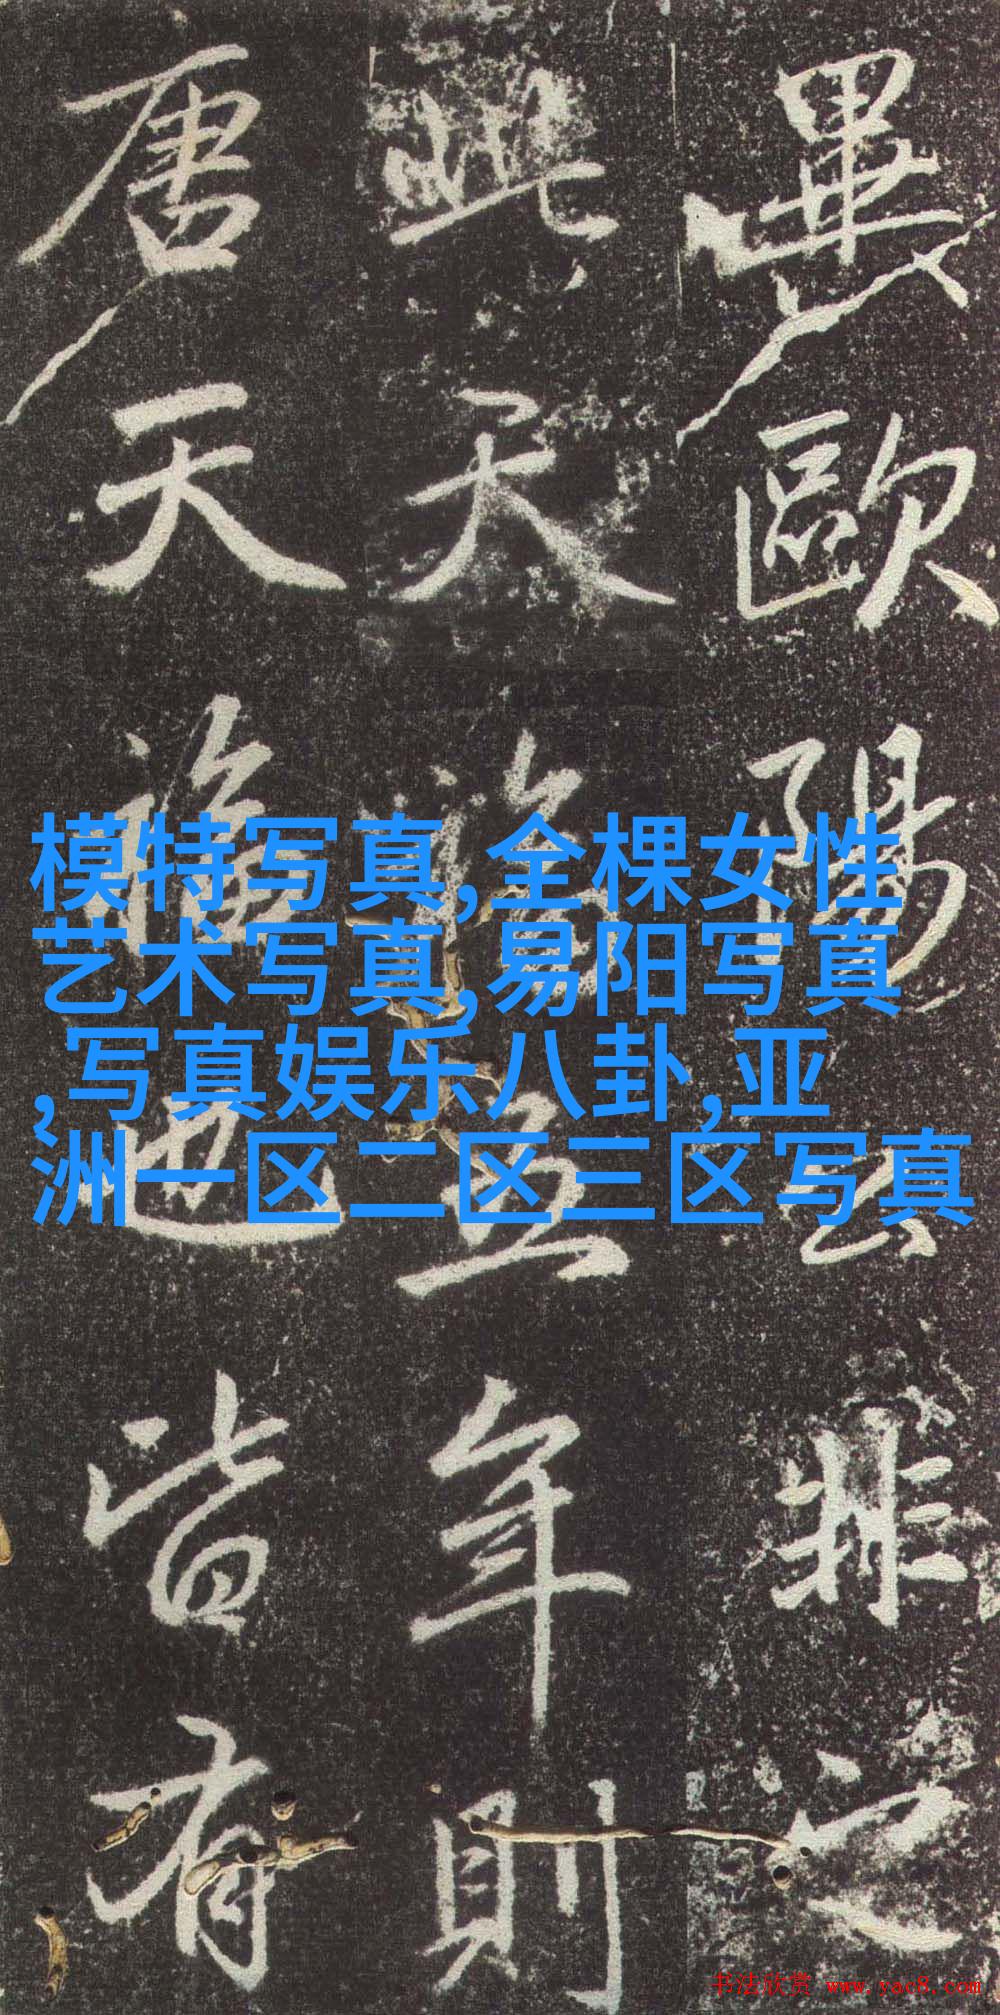 畢歐陽非之
此天年則
唐天皆有
模特写真,全棵女性
艺术写真,易阳写真
,写真娱乐八卦,亚
洲一区二区三区写真
书法欣赏 www.yac8.com